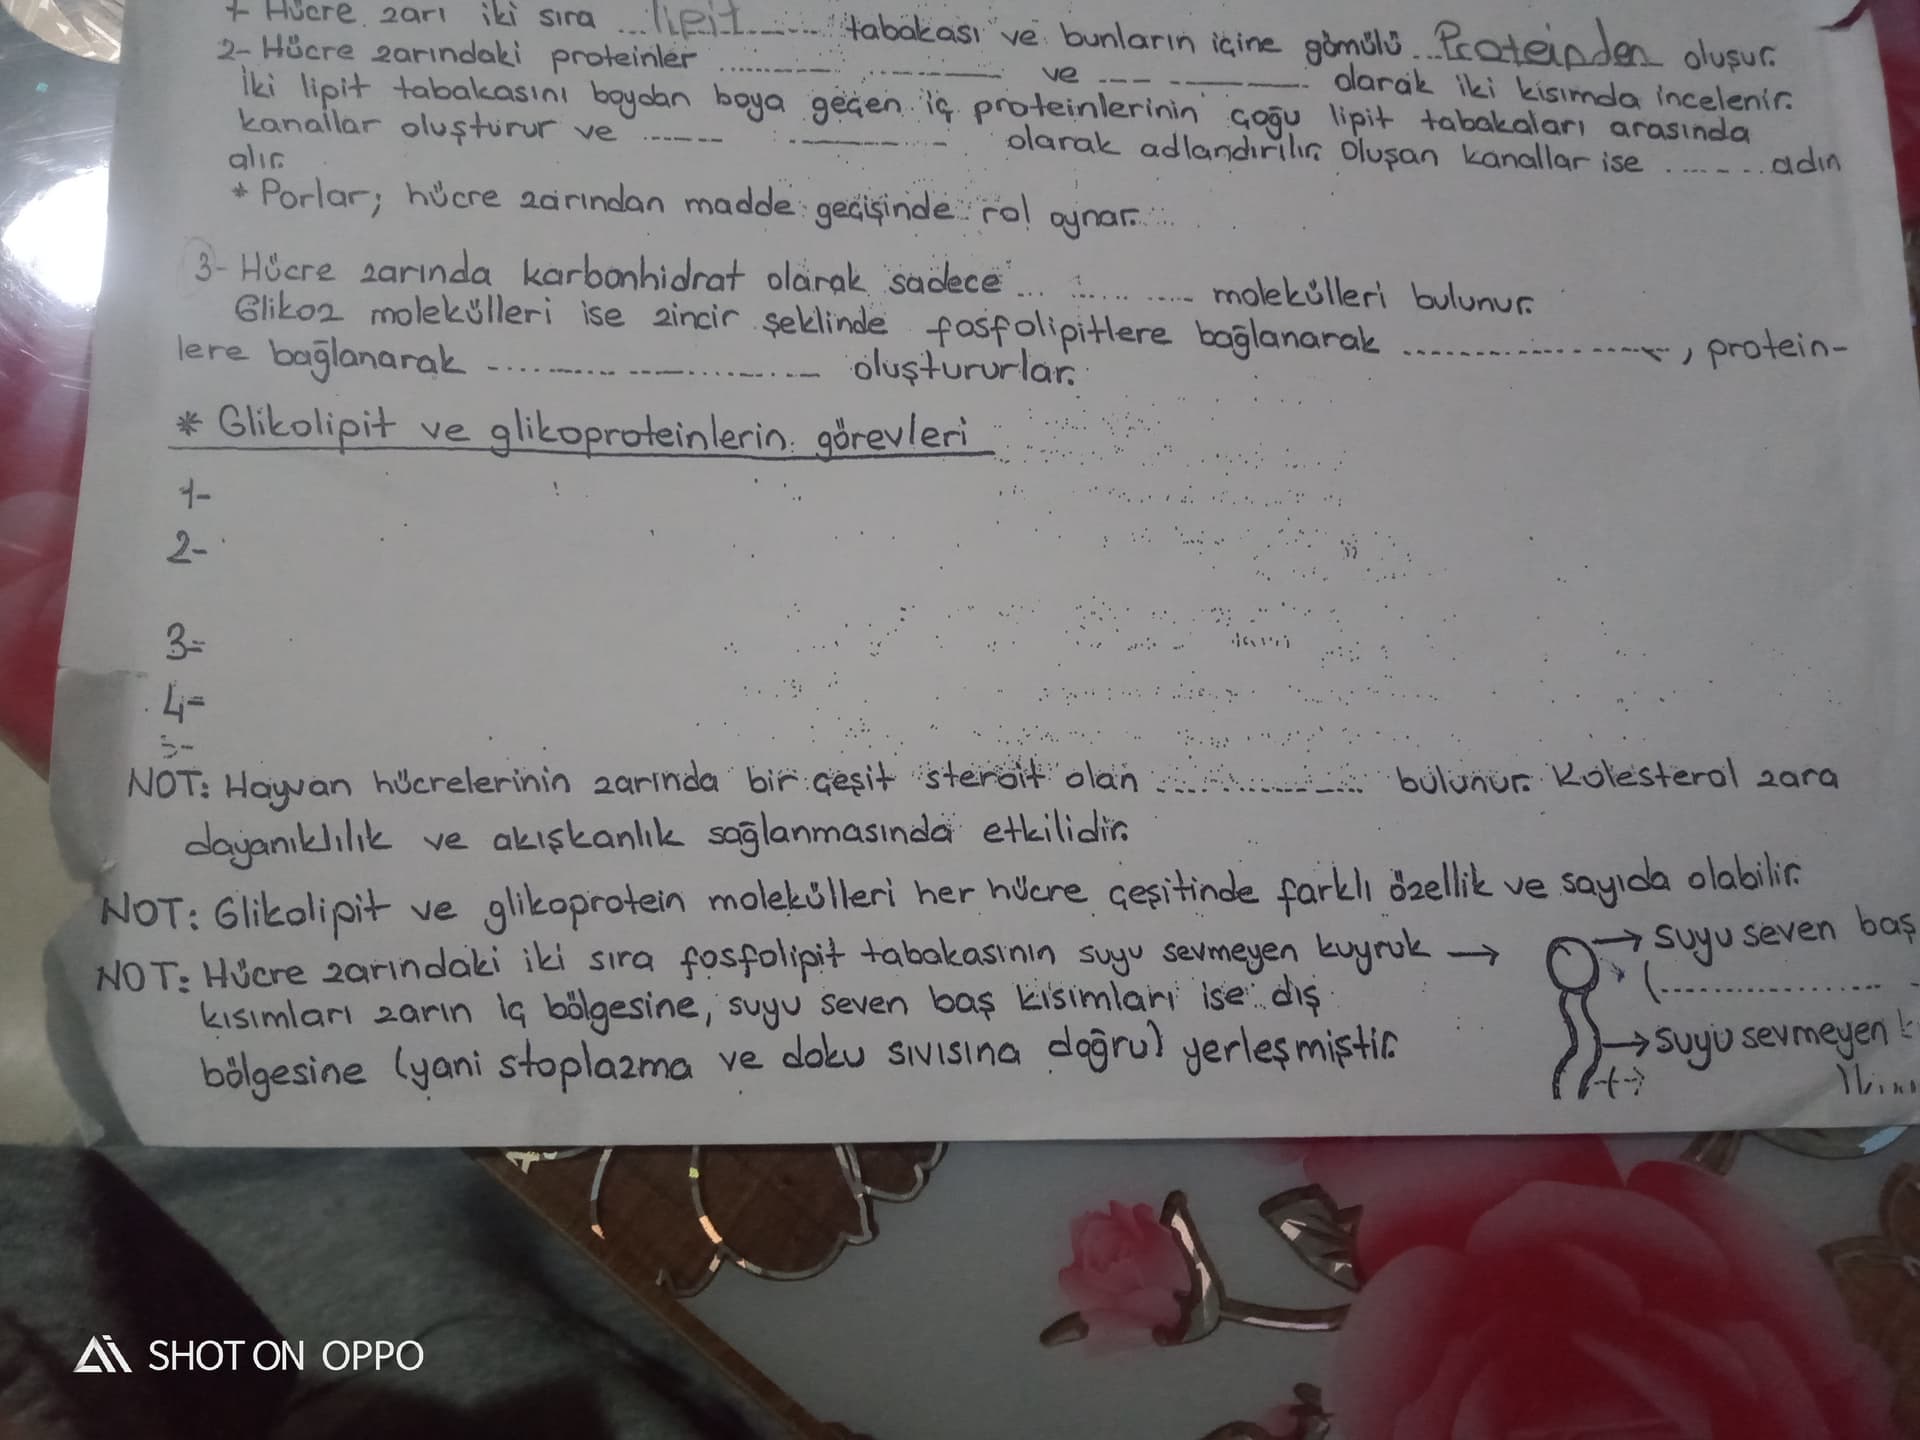 1- Hücre zarı iki sıra ... lipit ........ tabakası ve bunların içine gömülü ... Proteinden oluşur.
2- Hücre zarındaki proteinler .......... .......... ve .... .......... olarak iki kısımda incelenir.
İki lipit tabakasını boydan boya geçen iç proteinlerinin çoğu lipit tabakaları arasında
kanallar oluşturur ve ...... .......... olarak adlandırılır. Oluşan kanallar ise ....... adın
alır.
* Porlar; hücre zarından madde geçişinde rol oynar.
3- Hücre zarında karbonhidrat olarak sadece ... ........... molekülleri bulunur.
Glikoz molekülleri ise zincir şeklinde fosfolipitlere bağlanarak ...................., protein-
lere bağlanarak ........................ oluştururlar.
* Glikolipit ve glikoproteinlerin görevleri
1-
2-
3=
4=
5-
NOT: Hayvan hücrelerinin zarında bir çeşit steroit olan .................. bulunur. Kolesterol zara
dayanıklılık ve akışkanlık sağlanmasında etkilidir.
NOT: Glikolipit ve glikoprotein molekülleri her hücre çeşitinde farklı özellik ve sayıda olabilir.
NOT: Hücre zarındaki iki sıra fosfolipit tabakasının suyu sevmeyen kuyruk →
kısımları zarın iç bölgesine, suyu seven baş kısımları ise dış
bölgesine (yani stoplazma ve doku sıvısına doğru) yerleşmiştir.
→ suyu seven baş
(..................
→ suyu sevmeyen
SHOT ON OPPO